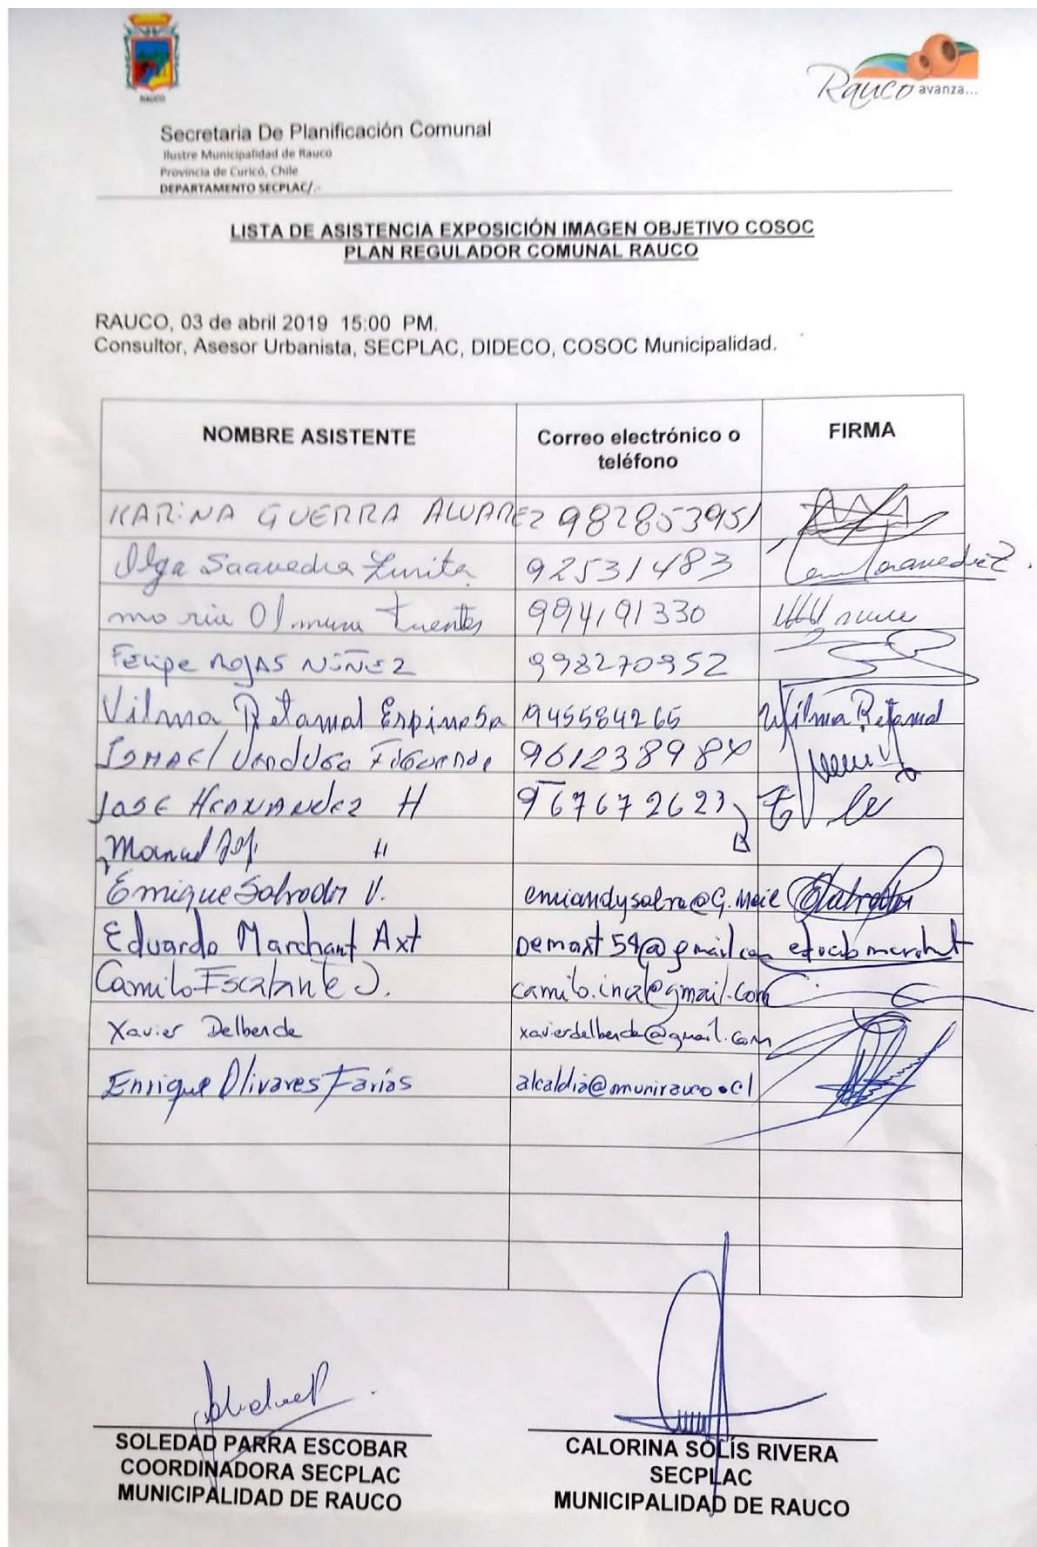 RAUCO
Rauco avanza...
Secretaria De Planificación Comunal
Ilustre Municipalidad de Rauco
Provincia de Curicó, Chile
DEPARTAMENTO SECPLAC/.-
LISTA DE ASISTENCIA EXPOSICIÓN IMAGEN OBJETIVO COSOC
PLAN REGULADOR COMUNAL RAUCO
RAUCO, 03 de abril 2019 15:00 PM.
Consultor, Asesor Urbanista, SECPLAC, DIDECO, COSOC Municipalidad.
NOMBRE ASISTENTE Correo electrónico o teléfono FIRMA
KARINA GUERRA ALVAREZ 982853951
Olga Saavedra Zurita 92531483
maria Fuentes 994191330
Felipe ROJAS NUÑEZ 998270952
Vilma Retamal Espinosa 945584265 Vilma Retamal
ISMAEL 961238984
JOSE HERNANDEZ H 967672623
Manuel "
Enrique Salvador V.
Eduardo Marchant Axt Demaxt59@gmail.com
Camilo Escalante J. camilo.inca@gmail.com
Xavier Delbende xavierdelbende@gmail.com
Enrique Olivares Farías alcaldia@munirauco.cl
SOLEDAD PARRA ESCOBAR
COORDINADORA SECPLAC
MUNICIPALIDAD DE RAUCO
CALORINA SOLÍS RIVERA
SECPLAC
MUNICIPALIDAD DE RAUCO